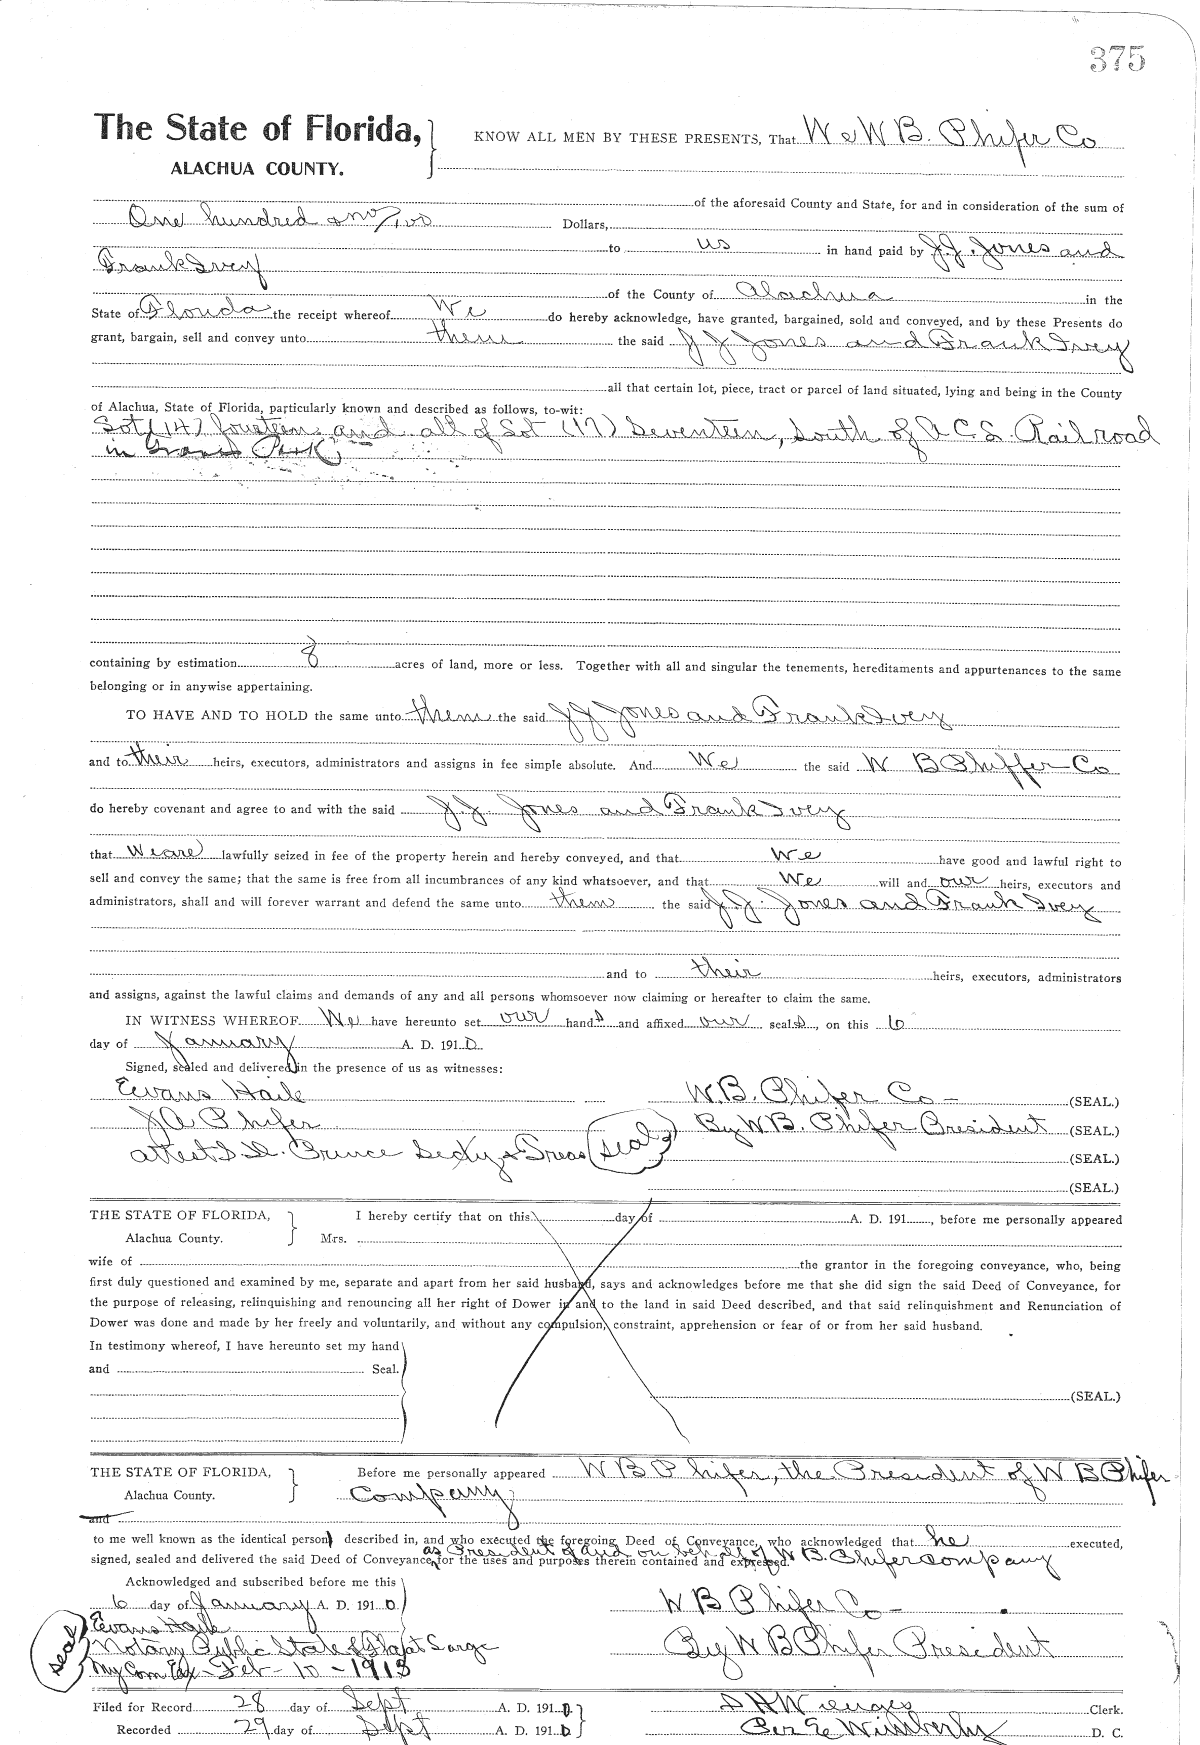 375
The State of Florida, KNOW ALL MEN BY THESE PRESENTS, That We W B. Phifer Co
ALACHUA COUNTY.
of the aforesaid County and State, for and in consideration of the sum of
One hundred & no/100 Dollars,
to us in hand paid by J.J. Jones and
Frank Ivey
of the County of Alachua in the
State of Florida the receipt whereof We do hereby acknowledge, have granted, bargained, sold and conveyed, and by these Presents do
grant, bargain, sell and convey unto them the said J J Jones and Frank Ivey
all that certain lot, piece, tract or parcel of land situated, lying and being in the County
of Alachua, State of Florida, particularly known and described as follows, to-wit:
Lot (14) fourteen and all of Lot (17) Seventeen, South of A C L Railroad
in Park,
containing by estimation 8 acres of land, more or less. Together with all and singular the tenements, hereditaments and appurtenances to the same
belonging or in anywise appertaining.
TO HAVE AND TO HOLD the same unto them the said J J Jones and Frank Ivey
and to their heirs, executors, administrators and assigns in fee simple absolute. And We the said W B Phiffer Co
do hereby covenant and agree to and with the said J.J. Jones and Frank Ivey
that We are lawfully seized in fee of the property herein and hereby conveyed, and that we have good and lawful right to
sell and convey the same; that the same is free from all incumbrances of any kind whatsoever, and that We will and our heirs, executors and
administrators, shall and will forever warrant and defend the same unto them the said J.J. Jones and Frank Ivey
and to their heirs, executors, administrators
and assigns, against the lawful claims and demands of any and all persons whomsoever now claiming or hereafter to claim the same.
IN WITNESS WHEREOF We have hereunto set our hands and affixed our seals, on this 6
day of January A. D. 1910.
Signed, sealed and delivered in the presence of us as witnesses:
Evans Haile W.B. Phifer Co - (SEAL.)
J A Phifer By W B. Phifer President (SEAL.)
attest Prince Secty & Treas (seal) (SEAL.)
(SEAL.)
THE STATE OF FLORIDA, I hereby certify that on this day of A. D. 191 , before me personally appeared
Alachua County. Mrs.
wife of the grantor in the foregoing conveyance, who, being
first duly questioned and examined by me, separate and apart from her said husband, says and acknowledges before me that she did sign the said Deed of Conveyance, for
the purpose of releasing, relinquishing and renouncing all her right of Dower in and to the land in said Deed described, and that said relinquishment and Renunciation of
Dower was done and made by her freely and voluntarily, and without any compulsion, constraint, apprehension or fear of or from her said husband.
In testimony whereof, I have hereunto set my hand
and Seal.
(SEAL.)
THE STATE OF FLORIDA, Before me personally appeared W B Phifer, the President of W B Phifer
Alachua County. Company
and
to me well known as the identical person described in, and who executed the foregoing Deed of Conveyance, who acknowledged that he executed,
as President of and on behalf of W B. Phifer company
signed, sealed and delivered the said Deed of Conveyance, for the uses and purposes therein contained and expressed.
Acknowledged and subscribed before me this
6 day of January A. D. 1910. W B Phifer Co -
Evans Haile
seal Notary Public State of Fla at Large By W B Phifer President
My Com Ex - Feb - 10 - 1913
Filed for Record 28 day of Sept A. D. 1910 S H Wienges Clerk.
Recorded 29 day of Sept A. D. 1910 Per Wimberly D. C.